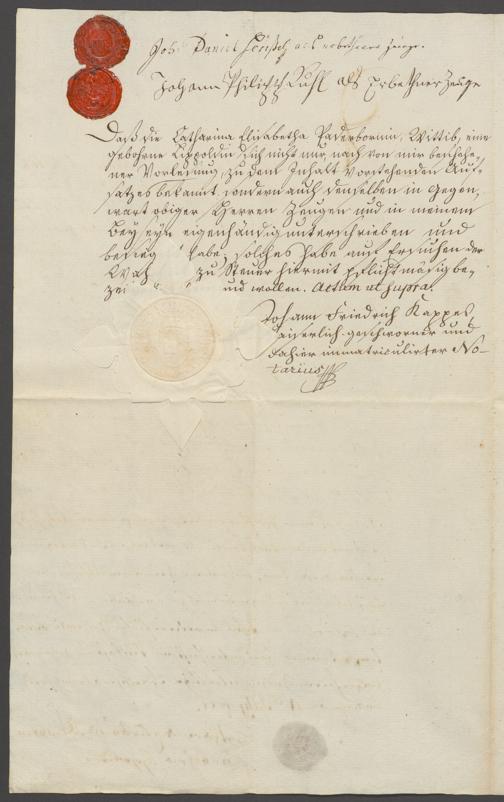 Joh: Daniel als erbethener Zeuge.
Johann Philipp Ruhl als Erbethner Zeuge
Daß die Catharina Elisabetha Paderbornin, Wittib, eine
gebohrne Lippoldin sich nicht nur nach von mir beschehe,
ner Vorlesung, zu dem Inhalt vorstehenden Auf,
satzes bekannt, sondern auch denselben in Gegen,
wart obiger Herren Zeugen und in meinem
Beyseyn eigenhändig unterschrieben und
besieg habe, solches habe auf Ersuchen der
Wah zu Steuer hiermit pflichtmäsig be,
zei und wollen. Actum ut supra.
Johann Friedrich Kappes,
Kaiserlich-geschworner und
dahier immatriculirter No-
tarius